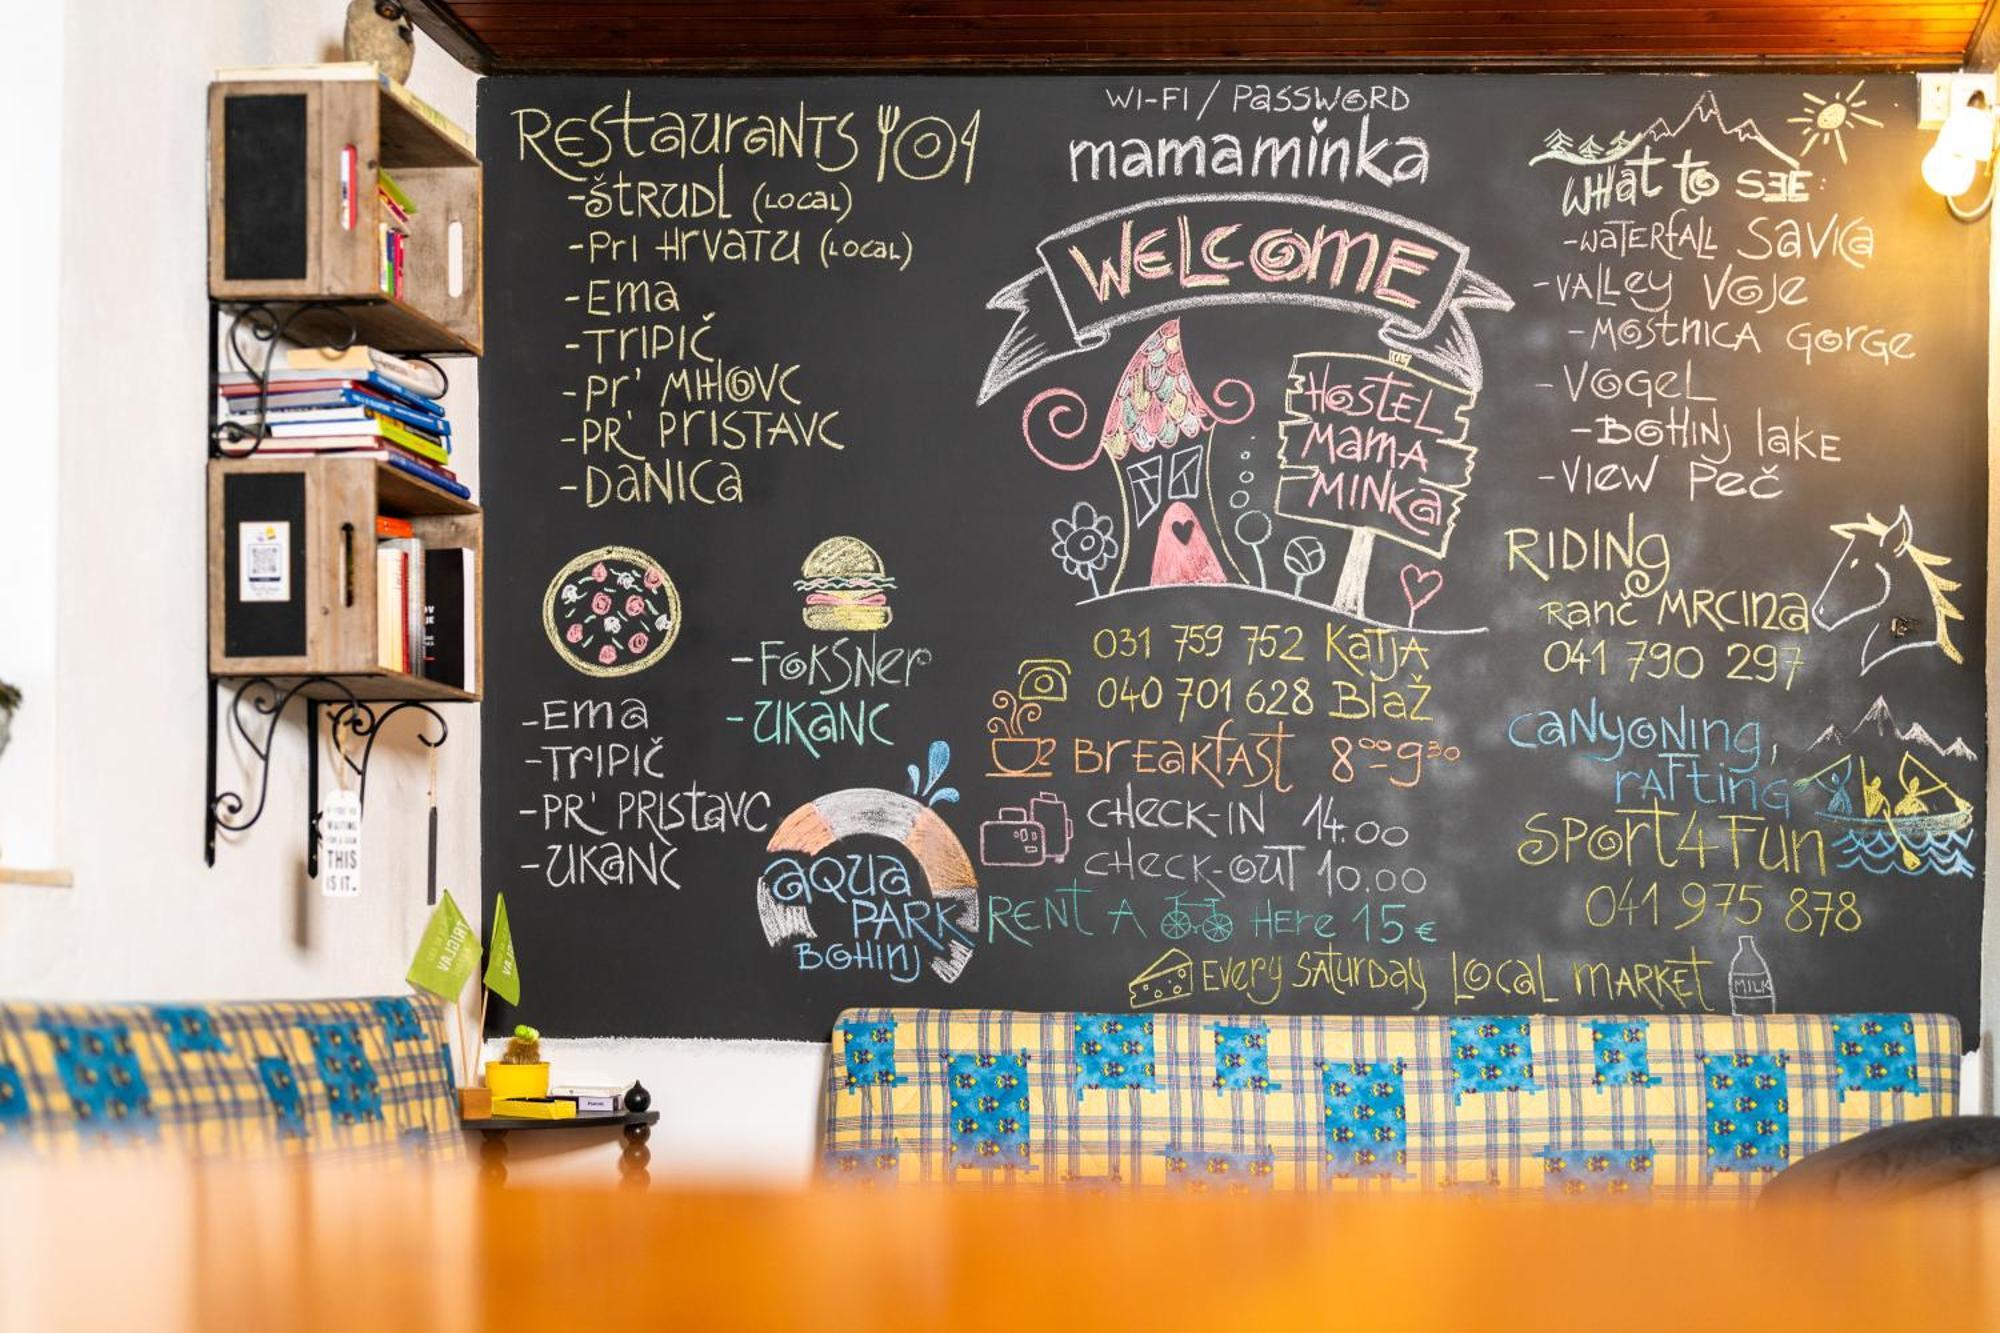 Restaurants
-ŠTRUDL (LOCAL)
-Pri Hrvatu (LOCAL)
-Ema
-TriPič
-Pr' MHOVC
-PR' PRISTAVC
-DANICA
-Ema
-TriPič
-PR' PRISTAVC
-UKANC
-FOKSNER
-UKANC
AQUA
PARK
BOHINJ
WI-FI / PASSWORD
mamaminka
WELCOME
HOSTEL
MAMA
MINKA
031 759 752 KATJA
040 701 628 BLAŽ
BREAKFAST 8⁰⁰-9³⁰
CHECK-IN 14.00
CHECK-OUT 10.00
RENT A HERE 15 €
EVERY SATURDAY LOCAL MARKET
MILK
WHAT TO SEE:
-WATERFALL SAVICA
-VALLEY VOJE
-MOSTNICA GORGE
-VOGEL
-BOHINJ LAKE
-VIEW PEČ
RIDING
RANČ MRCINA
041 790 297
CANYONING,
RAFTING
SPORT4FUN
041 975 878
THIS
IS IT_